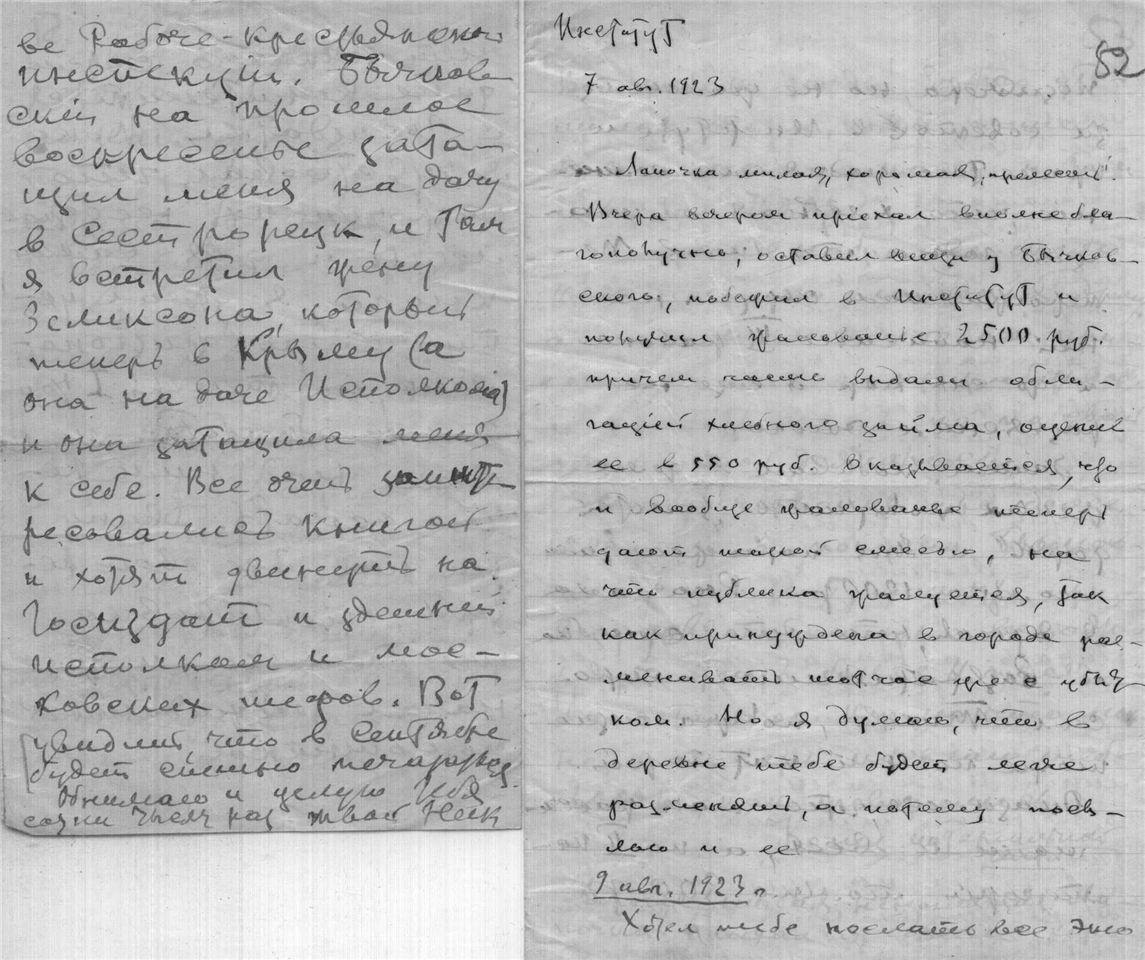 ве Рабоче-крестьянской
инспекции. Бычков-
ский на прошлое
воскресенье зата-
щил меня на дачу
в Сестрорецк, и там
я встретил жену
Зеликсона, который
теперь в Крыму (а
она на даче Исполкома)
и она затащила меня
к себе. Все очень заинте-
ресовались книгой
и хотят двинуть на
Госиздат и здешний
исполком и мос-
ковских шефов. Вот
увидишь, что в сентябре
будет сильно печататься.
Обнимаю и целую тебя
сотни тысяч раз твой
Институт
52
7 авг. 1923
Лапочка милая, хорошая, прелесть!
Вчера вечером приехал вполне бла-
гополучно; оставил вещи у Бычков-
ского, побежал в Институт и
получил жалованье 2500 руб.
причем часть выдали обли-
гацией хлебного займа, оценив
ее в 550 руб. Оказывается, что
и вообще жалованье теперь
дают такой смесью, на
что публика жалуется, так
как принуждена в городе раз-
менивать тотчас же с убыт-
ком. Но я думаю, что в
деревне тебе будет легче
разменять, а потому посы-
лаю и ее
9 авг. 1923.
Хотел тебе послать все это